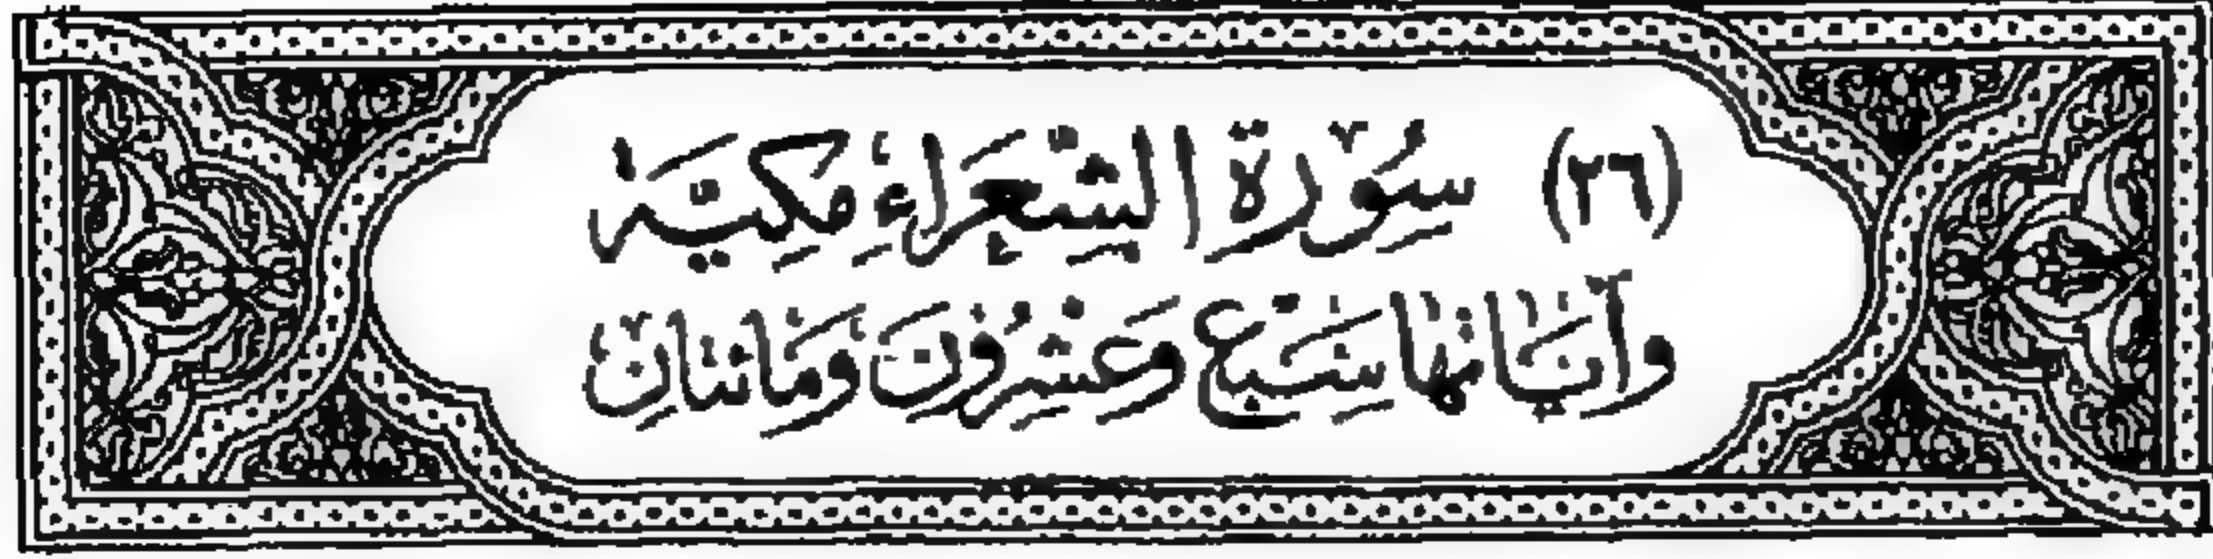 (٢٦) سُوْرَةُ الشُّعَرَاءِ مَكِيَّة
وَآيَاتُهَا سَبْعٌ وَعِشْرُوْنَ وَمَائتَانِ